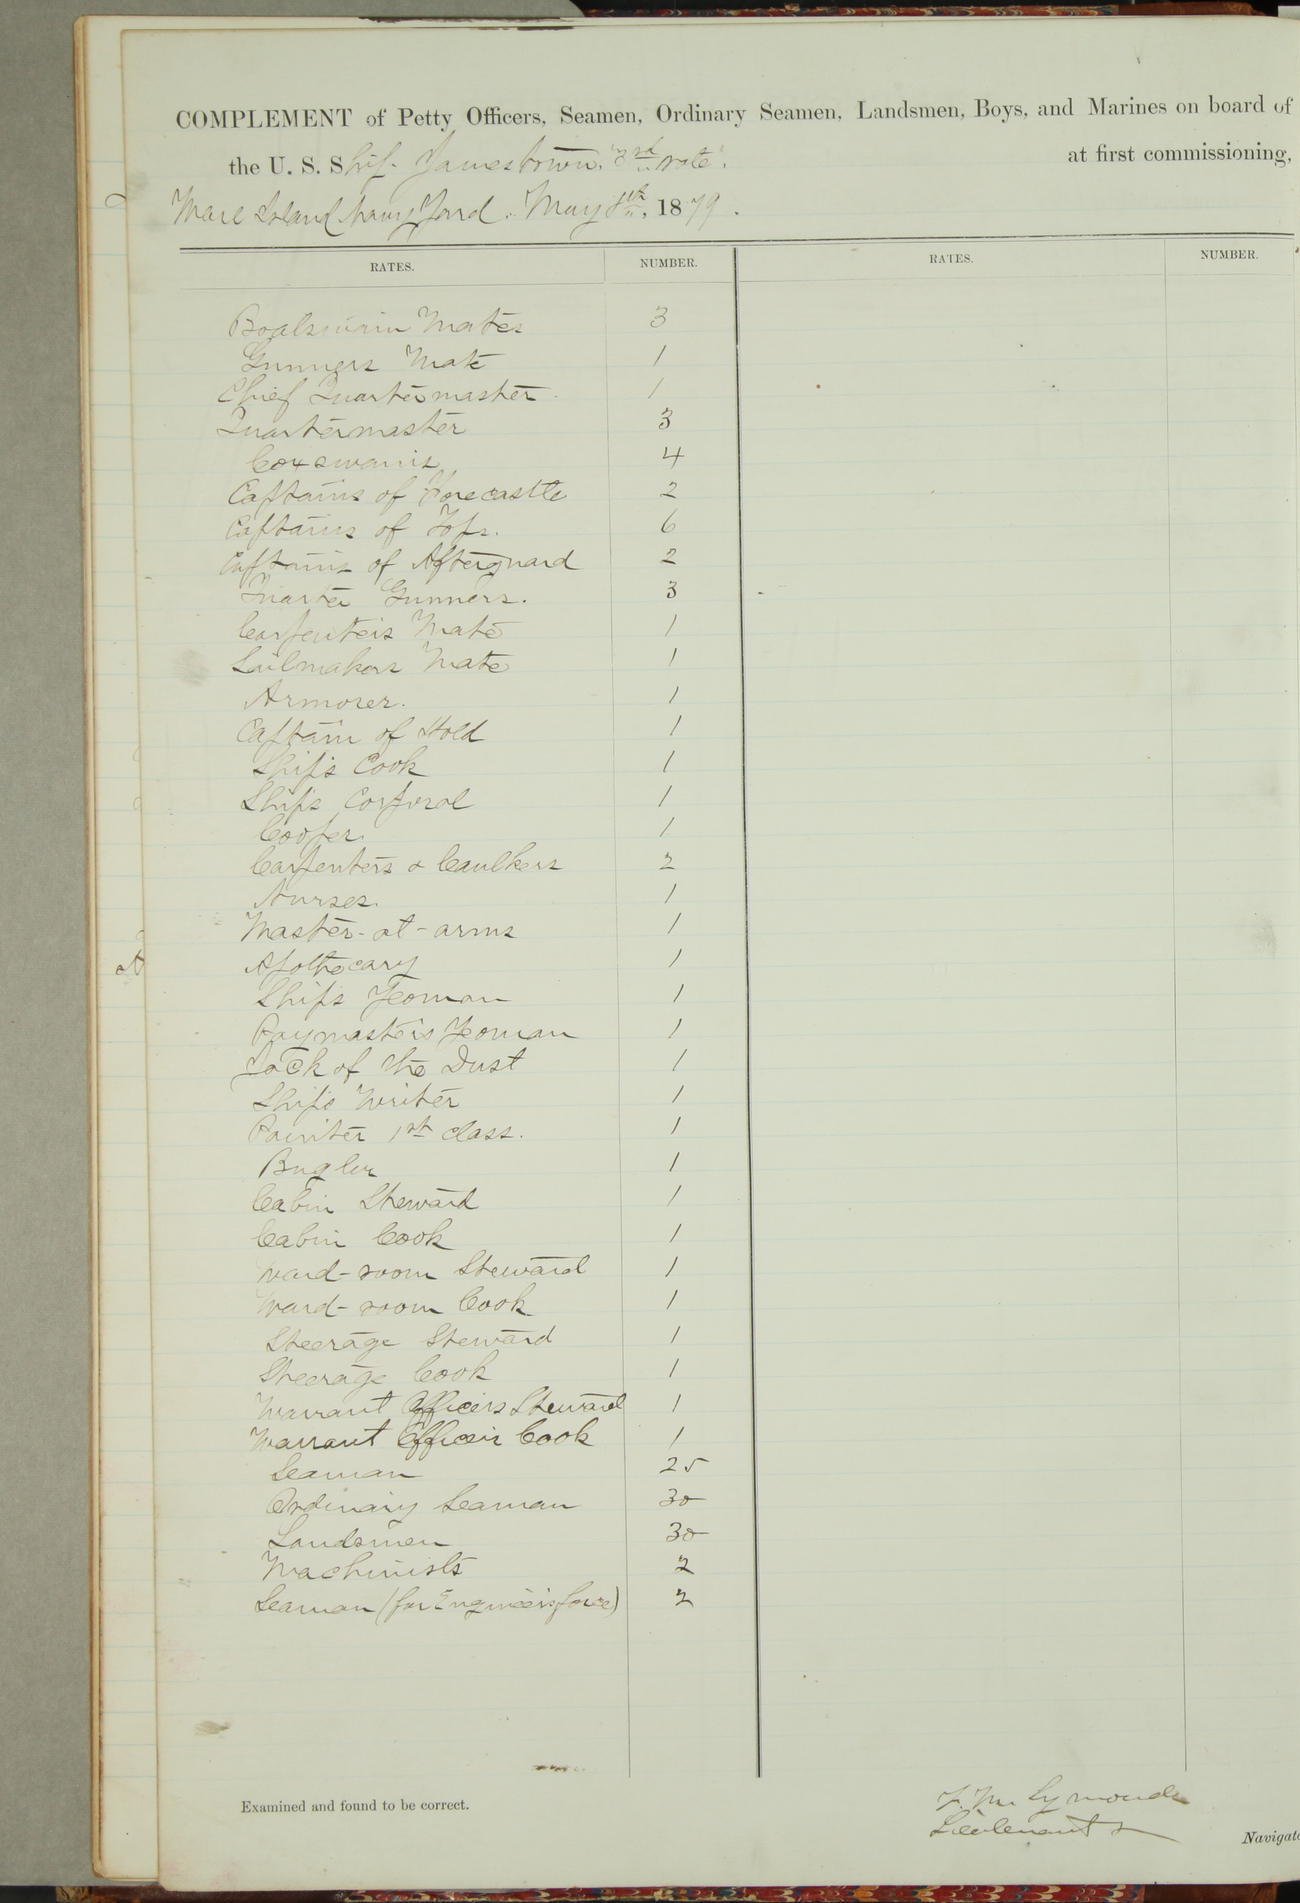 COMPLEMENT of Petty Officers, Seamen, Ordinary Seamen, Landsmen, Boys, and Marines on board of
the U. S. Ship. Jamestown. "3rd rate". at first commissioning,
Mare Island Navy Yard. May 8th, 1879.
RATES. NUMBER. RATES. NUMBER.
Boatswain Mates 3
Gunners Mate 1
Chief Quartermaster 1
Quartermaster 3
Coxswains 4
Captains of Forecastle 2
Captains of Tops. 6
Captains of Afterguard 2
Quarter Gunners. 3
Carpenters Mate 1
Sailmakers Mate 1
Armorer. 1
Captain of Hold 1
Ship's Cook 1
Ships Corporal 1
Cooper. 1
Carpenters & Caulkers 2
Nurses. 1
Master-at-arms 1
Apothecary 1
Ship's Yeoman 1
Paymasters Yeoman 1
Jack of the Dust 1
Ship's Writer 1
Painter 1st class. 1
Bugler 1
Cabin Steward 1
Cabin Cook 1
Ward-room Steward 1
Ward-room Cook 1
Steerage Steward 1
Steerage Cook 1
Warrant Officers Steward 1
Warrant Officer Cook 1
Seaman 25
Ordinary Seaman 30
Landsmen 30
Machinists 2
Seaman (for Engineers force) 2
Examined and found to be correct.
F. M. Symonds
Lieutenant &
Navigato